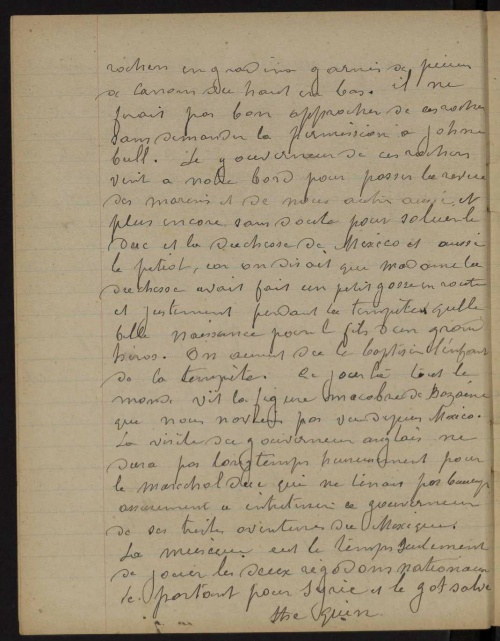 rochers en gradins garnis de pieces
de canons du haut en bas. il ne
ferait pas bon approcher de ces rochers
sans demander la permission a johne
bull. Le gouverneur de ces rochers
vint a notre bord pour passer la revue
des marins et de nous autres aussi et
plus encore sans doute pour saluer le
Duc et la duchesse de Mexico et aussi
le petiot, car on disait que madame la
duchesse avait fait un petit gosse en route
et justement pendant la tempête quelle
belle naissance pour le fils d'un grand
heros. On aurait du le baptiser l'enfant
de la tempête. Ce jour la tout le
monde vit la figure macabre de Bazaine
que nous navions pas vu depuis Mexico.
La visite du gouverneur anglais ne
dura pas longtemps heureusement pour
le marechal duc qui ne tenait pas beaucoup
assurement a entretenir ce gouverneur
de ses tristes aventures du Mexique.
La musique eut le temps seulement
de jouer les deux regodons nationaux
le partant pour Syrie et le got salve
the quen